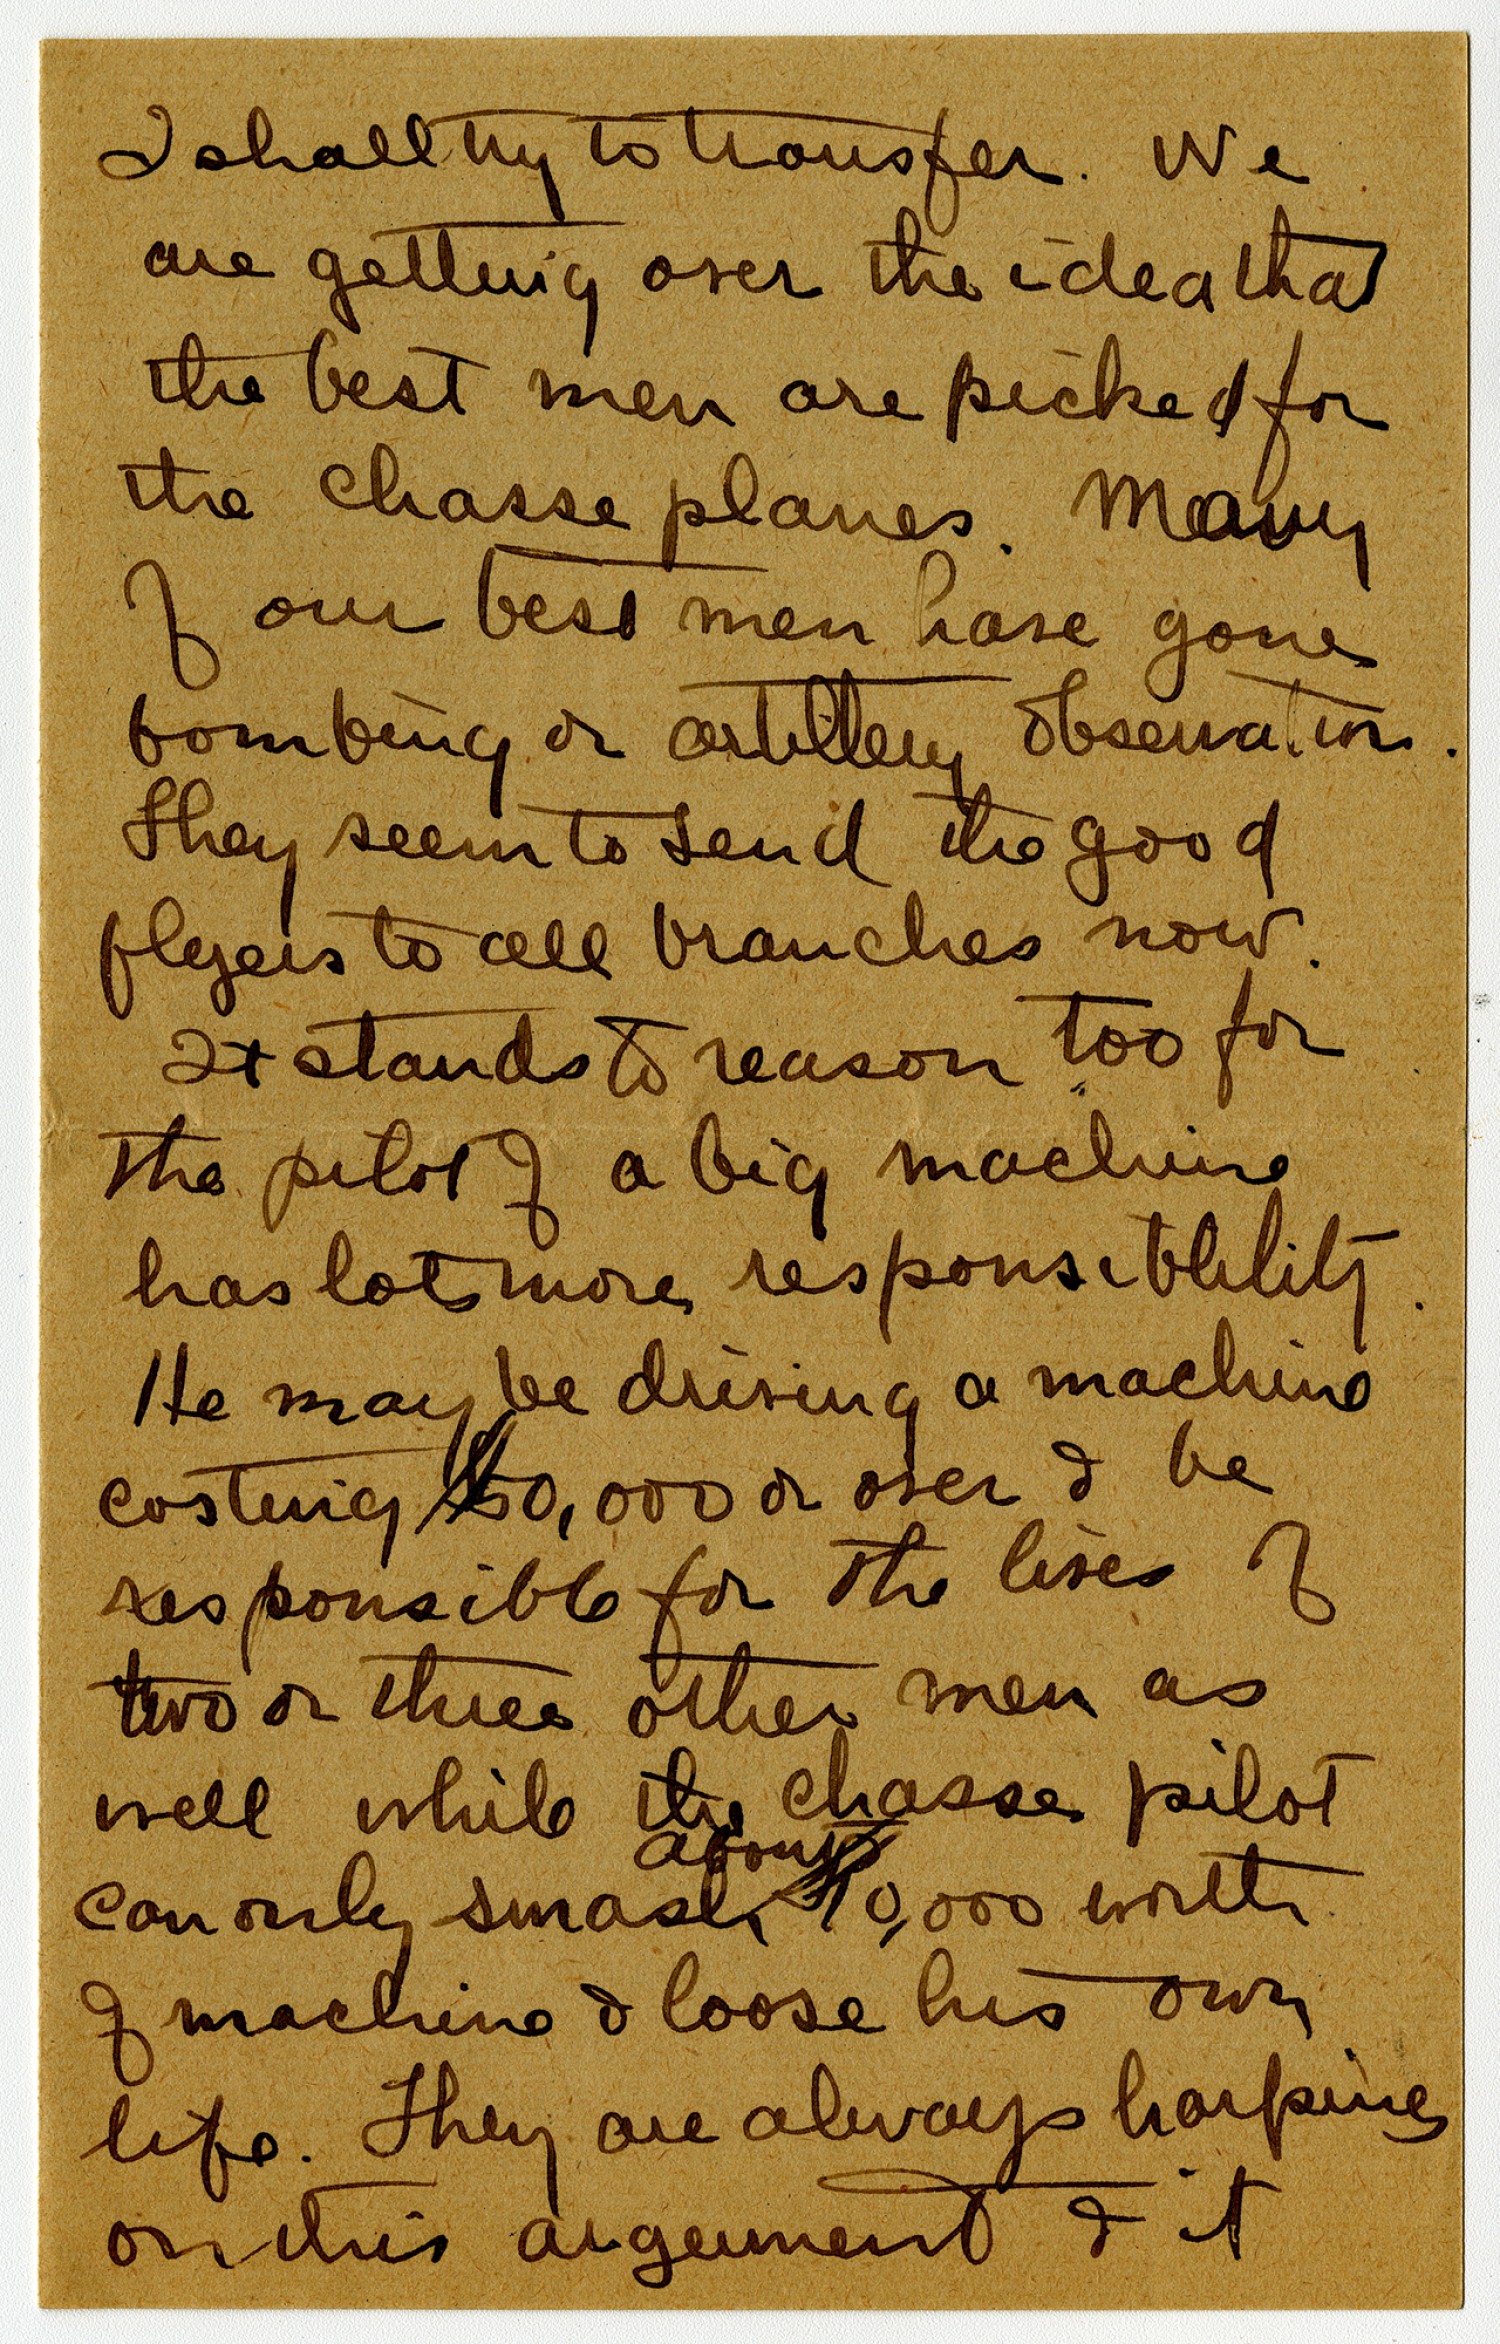 I shall try to transfer. We
are getting over the idea that
the best men are picked for
the chasse planes. Many
of our best men have gone
bombing or artillery observation.
They seem to send the good
flyers to all branches now.
It stands to reason too for
the pilot of a big machine
has lots more responsiblility.
He may be driving a machine
costing $50,000 or over & be
responsible for the lives of
two or three other men as
well while the chasse pilot
about
can only smash $10,000 worth
of machine & loose his own
life. They are always harping
on this arguement & it